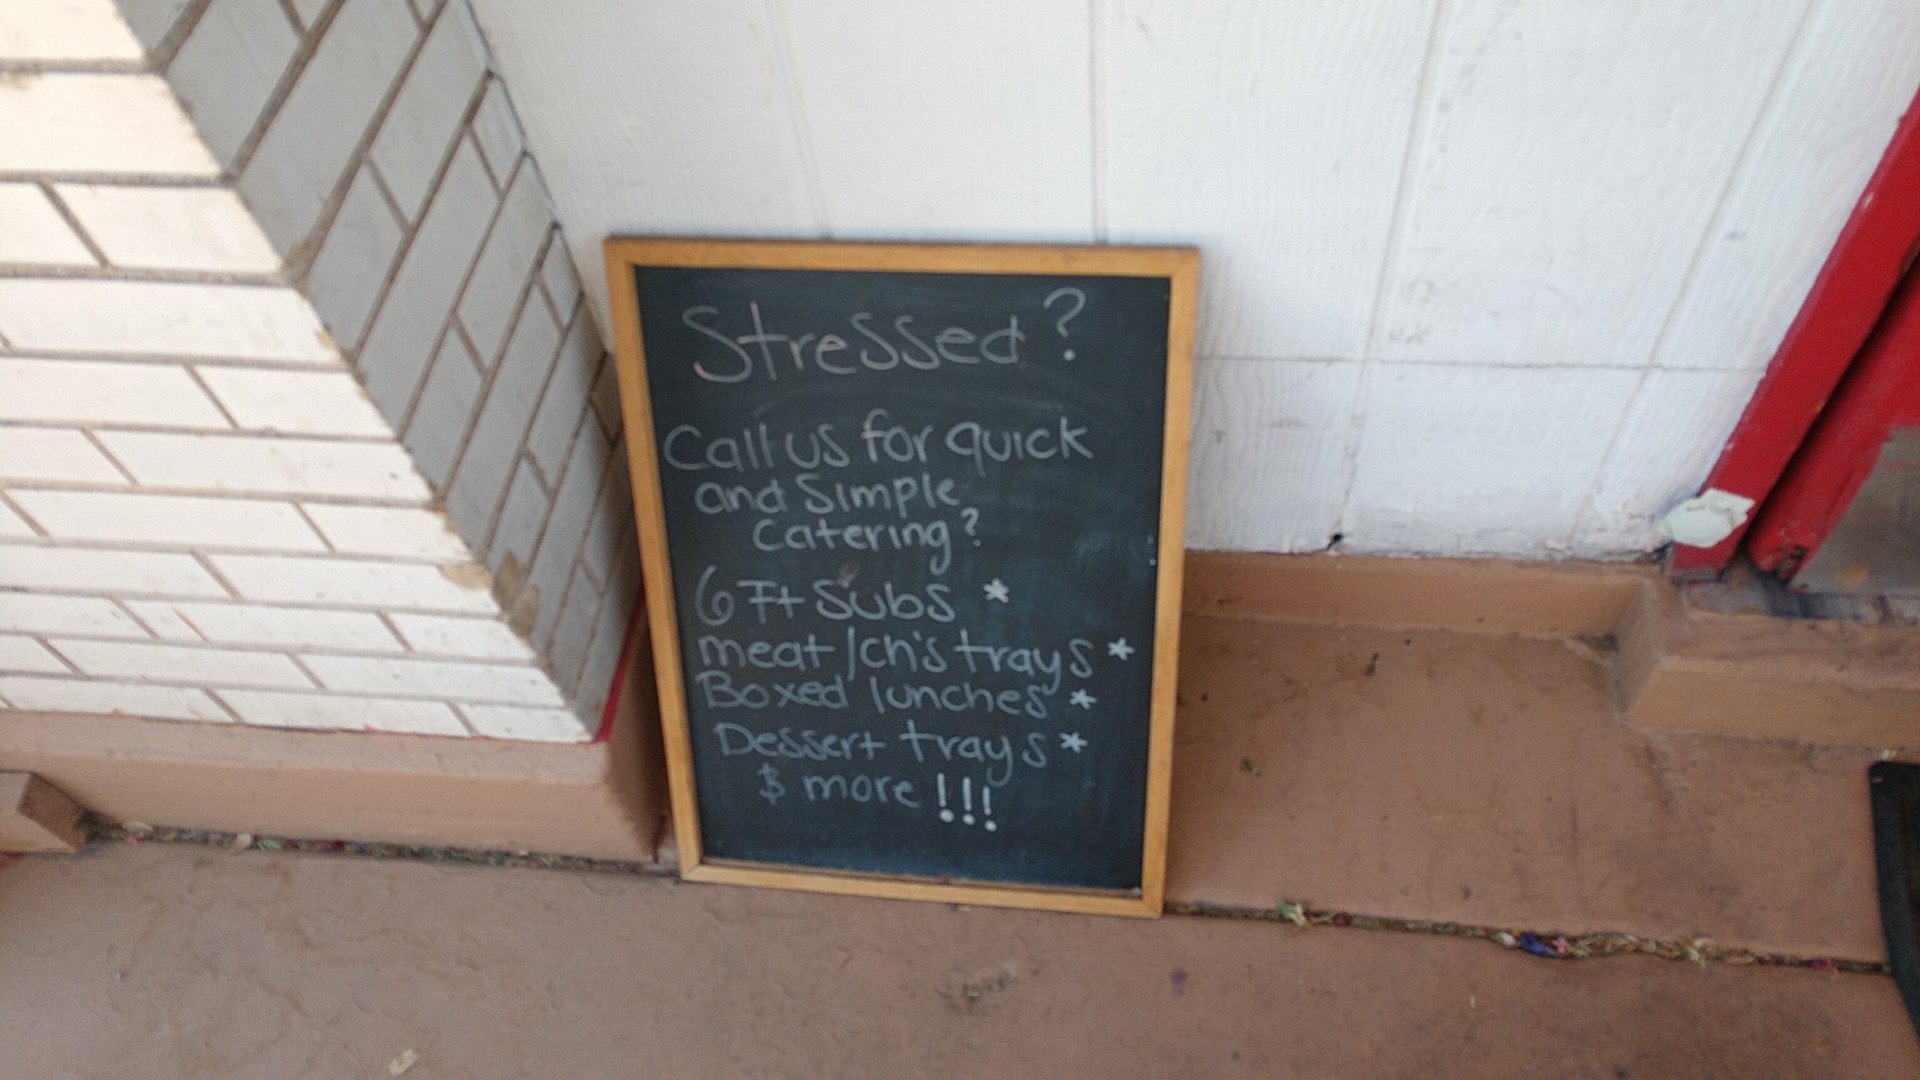 Stressed?
Call us for quick
and Simple
Catering?
6 Ft Subs *
meat/ch's trays *
Boxed lunches *
Dessert trays *
$ more !!!